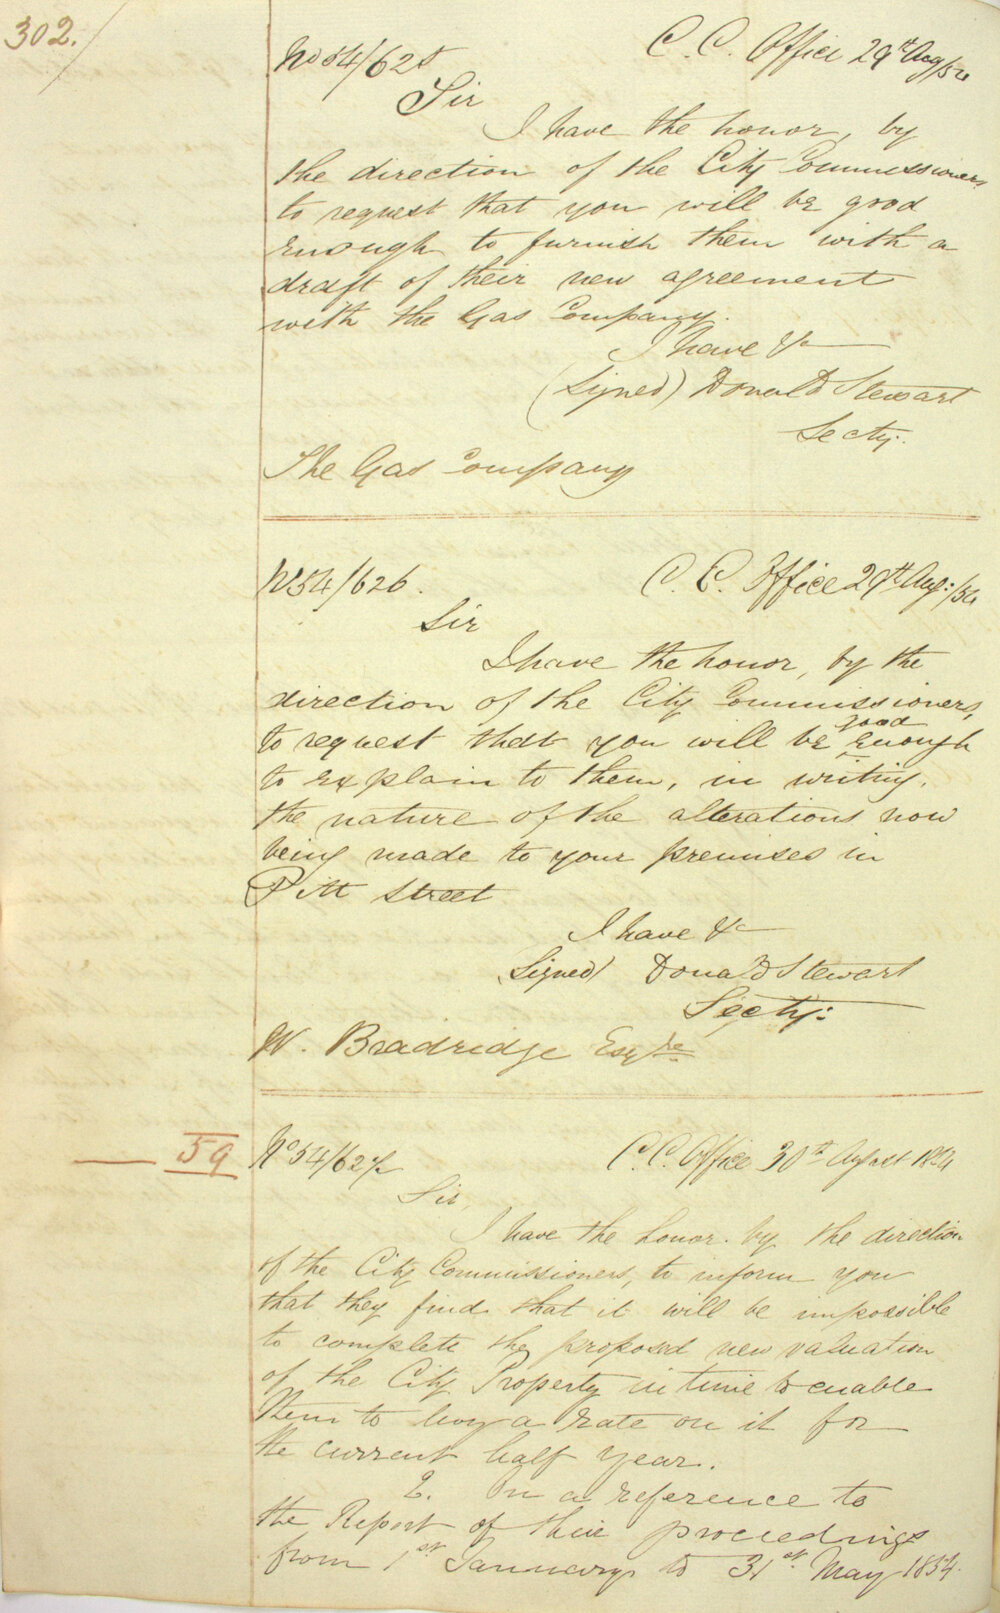 302.
No 54/625 C. C. Office 29th Aug/54
Sir
I have the honor, by
the direction of the City Commissioners
to request that you will be good
enough to furnish them with a
draft of their new agreement
with the Gas Company.
I have &c
(Signed) Donald Stewart
Secty.
The Gas Company
No 54/626. C. C. Office 29th Aug:/54
Sir
I have the honor, by the
direction of the City Commissioners,
good
to request that you will be enough
to explain to them, in writing,
the nature of the alterations now
being made to your premises in
Pitt Street
I have &c
Signed) Donald Stewart
Secty:
W. Bradridge Esqre
59
No 54/627 C. C. Office 30th August 1854
Sir,
I have the honor. by the direction
of the City Commissioners, to inform you
that they find that it will be impossible
to complete the proposed new valuation
of the City Property in time to enable
them to levy a rate on it for
the current half year.
2. On a reference to
the Report of their proceedings
from 1st January to 31st May 1854.